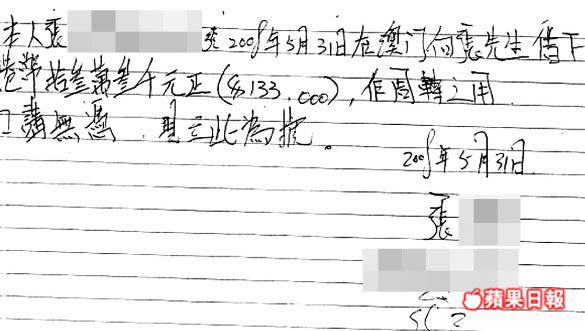 本人張 於2009年5月31日在澳门向張先生借下
港幣拾叁萬叁千元正($133,000),作周轉之用
口講無憑,現立此為據。
2009年5月31日
張
蘋果日報